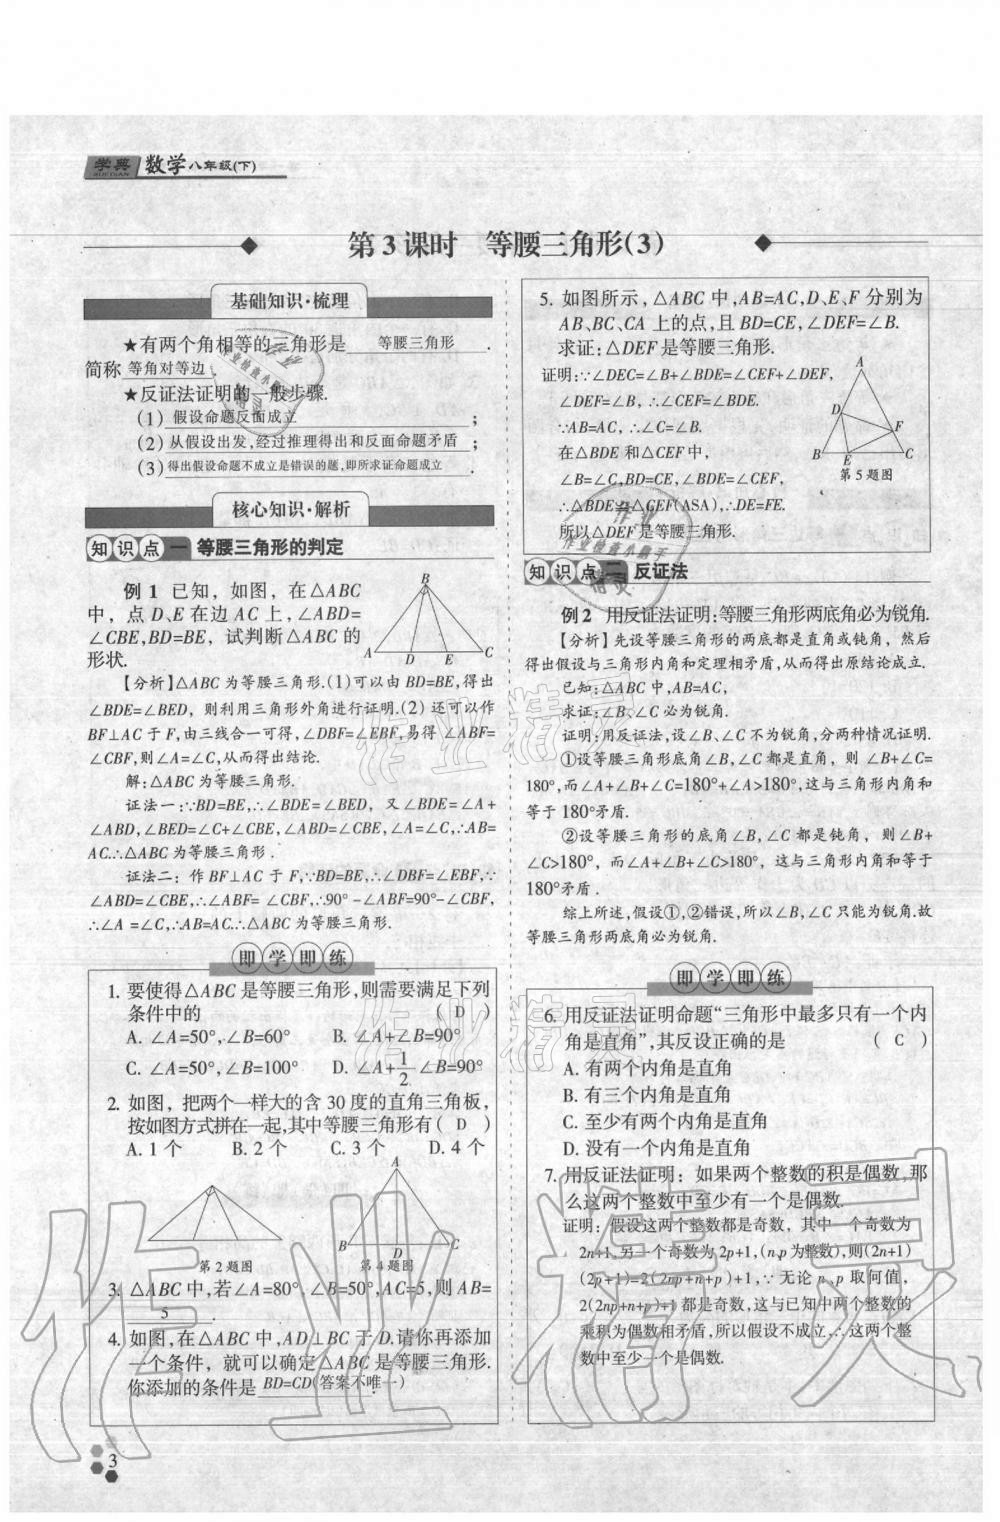 学典 数学八年级(下)
XUEDIAN
第3课时 等腰三角形(3)
基础知识·梳理
★有两个角相等的三角形是 等腰三角形 .
简称 等角对等边 .
★反证法证明的一般步骤.
(1) 假设命题反面成立 ;
(2) 从假设出发,经过推理得出和反面命题矛盾 ;
(3) 得出假设命题不成立是错误的题,即所求证命题成立 .
核心知识·解析
知识点一 等腰三角形的判定
例1 已知,如图,在△ABC
中,点D、E在边AC上,∠ABD=
∠CBE,BD=BE,试判断△ABC的
形状.
B
A D E C
【分析】△ABC为等腰三角形.(1)可以由BD=BE,得出
∠BDE=∠BED,则利用三角形外角进行证明.(2)还可以作
BF⊥AC于F,由三线合一可得,∠DBF=∠EBF,易得∠ABF=
∠CBF,则∠A=∠C,从而得出结论.
解:△ABC为等腰三角形.
证法一:∵BD=BE,∴∠BDE=∠BED,又∠BDE=∠A+
∠ABD,∠BED=∠C+∠CBE,∠ABD=∠CBE,∠A=∠C,∴AB=
AC.∴△ABC为等腰三角形.
证法二:作BF⊥AC于F,∵BD=BE,∴∠DBF=∠EBF,∵
∠ABD=∠CBE,∴∠ABF=∠CBF,∴90°-∠ABF=90°-∠CBF,
∴∠A=∠C,∴AB=AC.∴△ABC为等腰三角形.
即学即练
1. 要使得△ABC是等腰三角形,则需要满足下列
条件中的 ( D )
A. ∠A=50°,∠B=60° B. ∠A+∠B=90°
C. ∠A=50°,∠B=100° D. ∠A+1/2∠B=90°
2. 如图,把两个一样大的含30度的直角三角板,
按如图方式拼在一起,其中等腰三角形有( D )
A. 1个 B. 2个 C. 3个 D. 4个
A
B D C
第2题图 第4题图
3. △ABC中,若∠A=80°,∠B=50°,AC=5,则AB=
5 .
4. 如图,在△ABC中,AD⊥BC于D.请你再添加
一个条件,就可以确定△ABC是等腰三角形.
你添加的条件是 BD=CD(答案不唯一) .
3
5. 如图所示,△ABC中,AB=AC,D、E、F分别为
AB、BC、CA上的点,且BD=CE,∠DEF=∠B.
求证:△DEF是等腰三角形.
证明:∵∠DEC=∠B+∠BDE=∠CEF+∠DEF,
∠DEF=∠B,∴∠CEF=∠BDE.
∵AB=AC,∴∠C=∠B.
在△BDE和△CEF中,
∠B=∠C,BD=CE,∠BDE=∠CEF,
∴△BDE≌△CEF(ASA),∴DE=FE.
所以△DEF是等腰三角形.
A
D
F
B E C
第5题图
知识点二 反证法
例2 用反证法证明:等腰三角形两底角必为锐角.
【分析】先设等腰三角形的两底都是直角或钝角,然后
得出假设与三角形内角和定理相矛盾,从而得出原结论成立.
已知:△ABC中,AB=AC,
求证:∠B、∠C必为锐角.
证明:用反证法,设∠B、∠C不为锐角,分两种情况证明.
①设等腰三角形底角∠B,∠C都是直角,则∠B+∠C=
180°,而∠A+∠B+∠C=180°+∠A>180°,这与三角形内角和
等于180°矛盾.
②设等腰三角形的底角∠B,∠C都是钝角,则∠B+
∠C>180°,而∠A+∠B+∠C>180°,这与三角形内角和等于
180°矛盾.
综上所述,假设①,②错误,所以∠B、∠C只能为锐角.故
等腰三角形两底角必为锐角.
即学即练
6. 用反证法证明命题“三角形中最多只有一个内
角是直角”,其反设正确的是 ( C )
A. 有两个内角是直角
B. 有三个内角是直角
C. 至少有两个内角是直角
D. 没有一个内角是直角
7. 用反证法证明:如果两个整数的积是偶数,那
么这两个整数中至少有一个是偶数.
证明:假设这两个整数都是奇数,其中一个奇数为
2n+1,另一个奇数为2p+1,(n、p为整数),则(2n+1)
(2p+1)=2(2np+n+p)+1,∵无论n、p取何值,
2(2np+n+p)+1都是奇数,这与已知中两个整数的
乘积为偶数相矛盾,所以假设不成立,∴这两个整
数中至少一个是偶数.
作业精灵
作业精灵
作业精灵